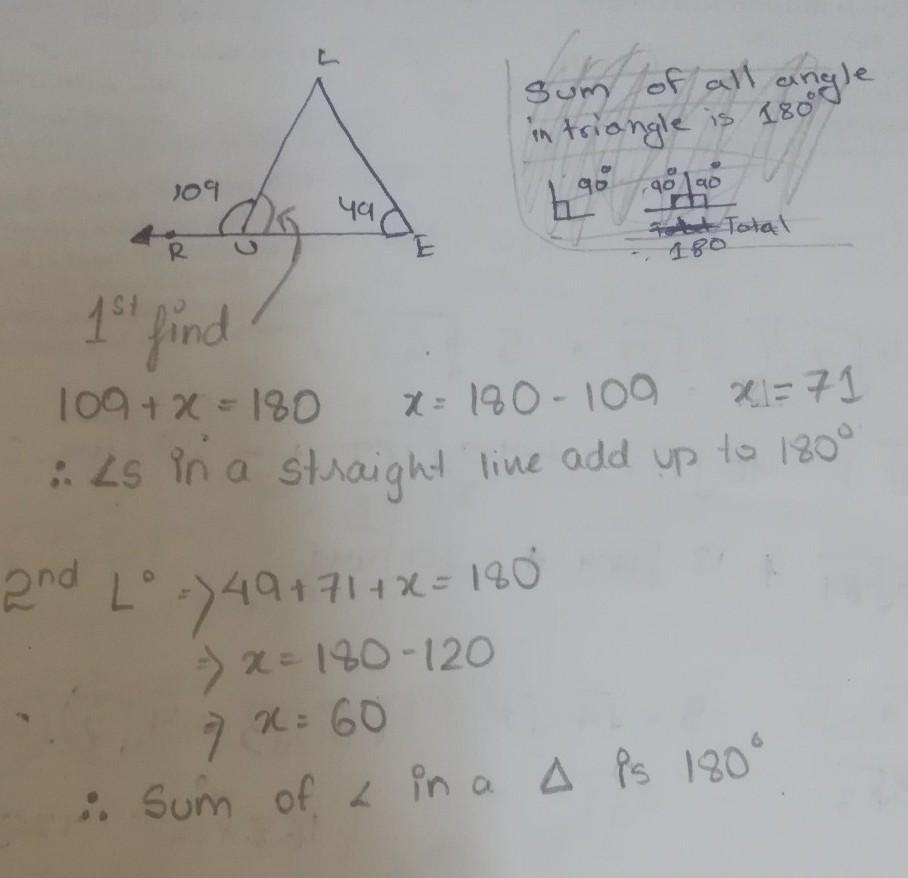 L
109
49
R
U
E
Sum of all angle
in triangle is 180°
90°
90° 90°
Total
∴ 180
1st find
109 + x = 180 x = 180 - 109 x = 71
∴ ∠s in a straight line add up to 180°
2nd L° => 49 + 71 + x = 180°
=> x = 180 - 120
=> x = 60
∴ Sum of ∠ in a △ is 180°